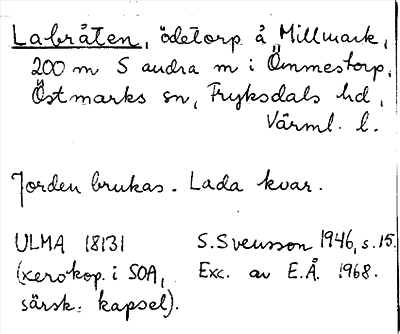 Labråten, ödetorp å Millmark,
200 m S andra m i Ömmestorp,
Östmarks sn, Fryksdals hd,
Värml. l.
Jorden brukas. Lada kvar.
ULMA 18131 S. Svensson 1946, s. 15.
(xerokop. i SOA, Exc. av E.Å. 1968.
särsk. kapsel).